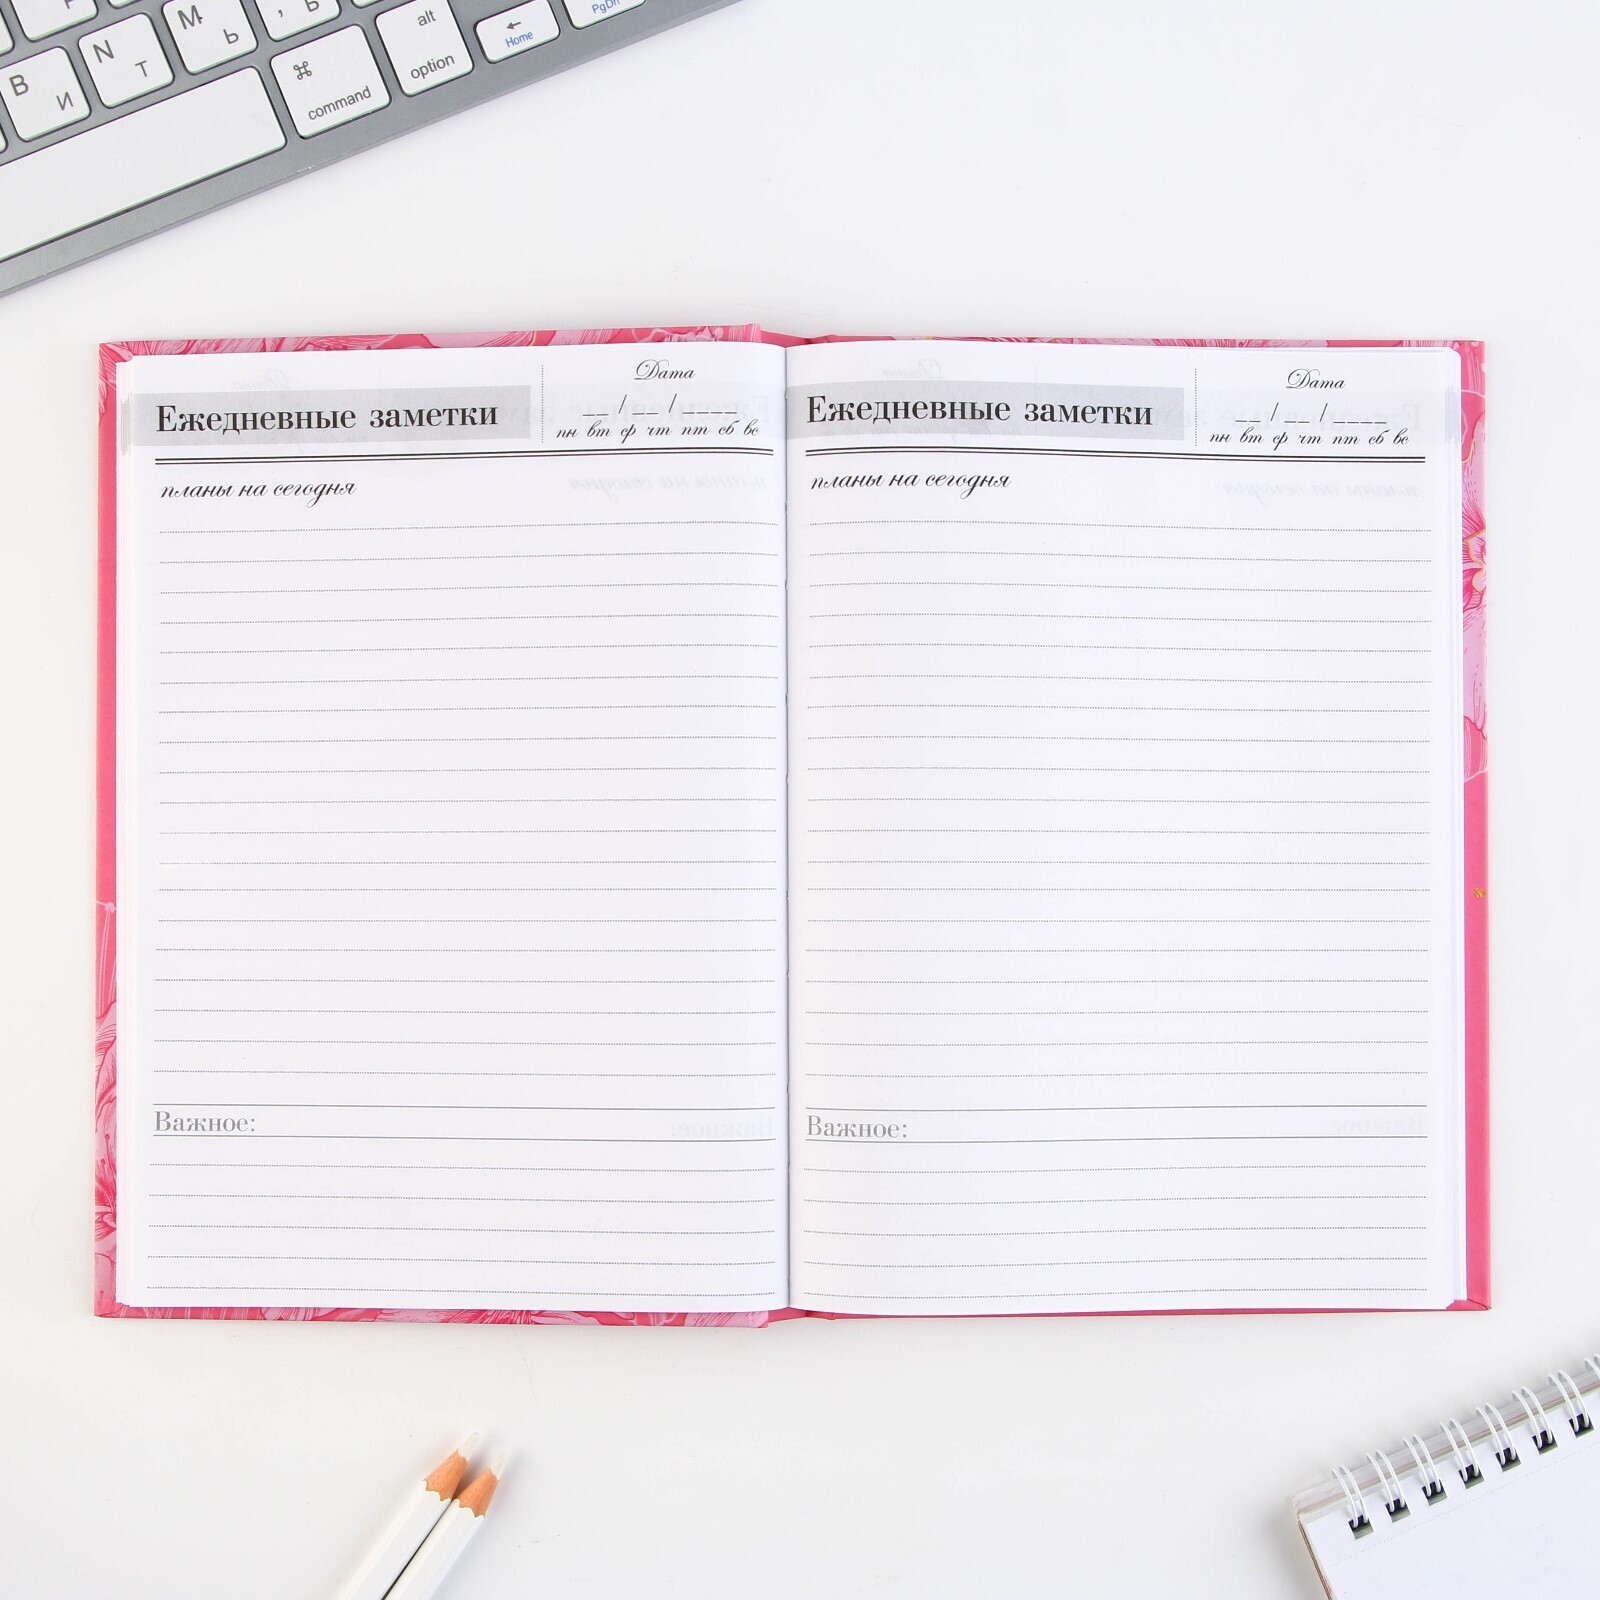 M
Ь
N
Т
В
И
⌘
command
alt
option
←
Home
PgDn
Ежедневные заметки
Дата
__/__/____
пн вт ср чт пт сб вс
планы на сегодня
Важное:
Ежедневные заметки
Дата
__/__/____
пн вт ср чт пт сб вс
планы на сегодня
Важное: